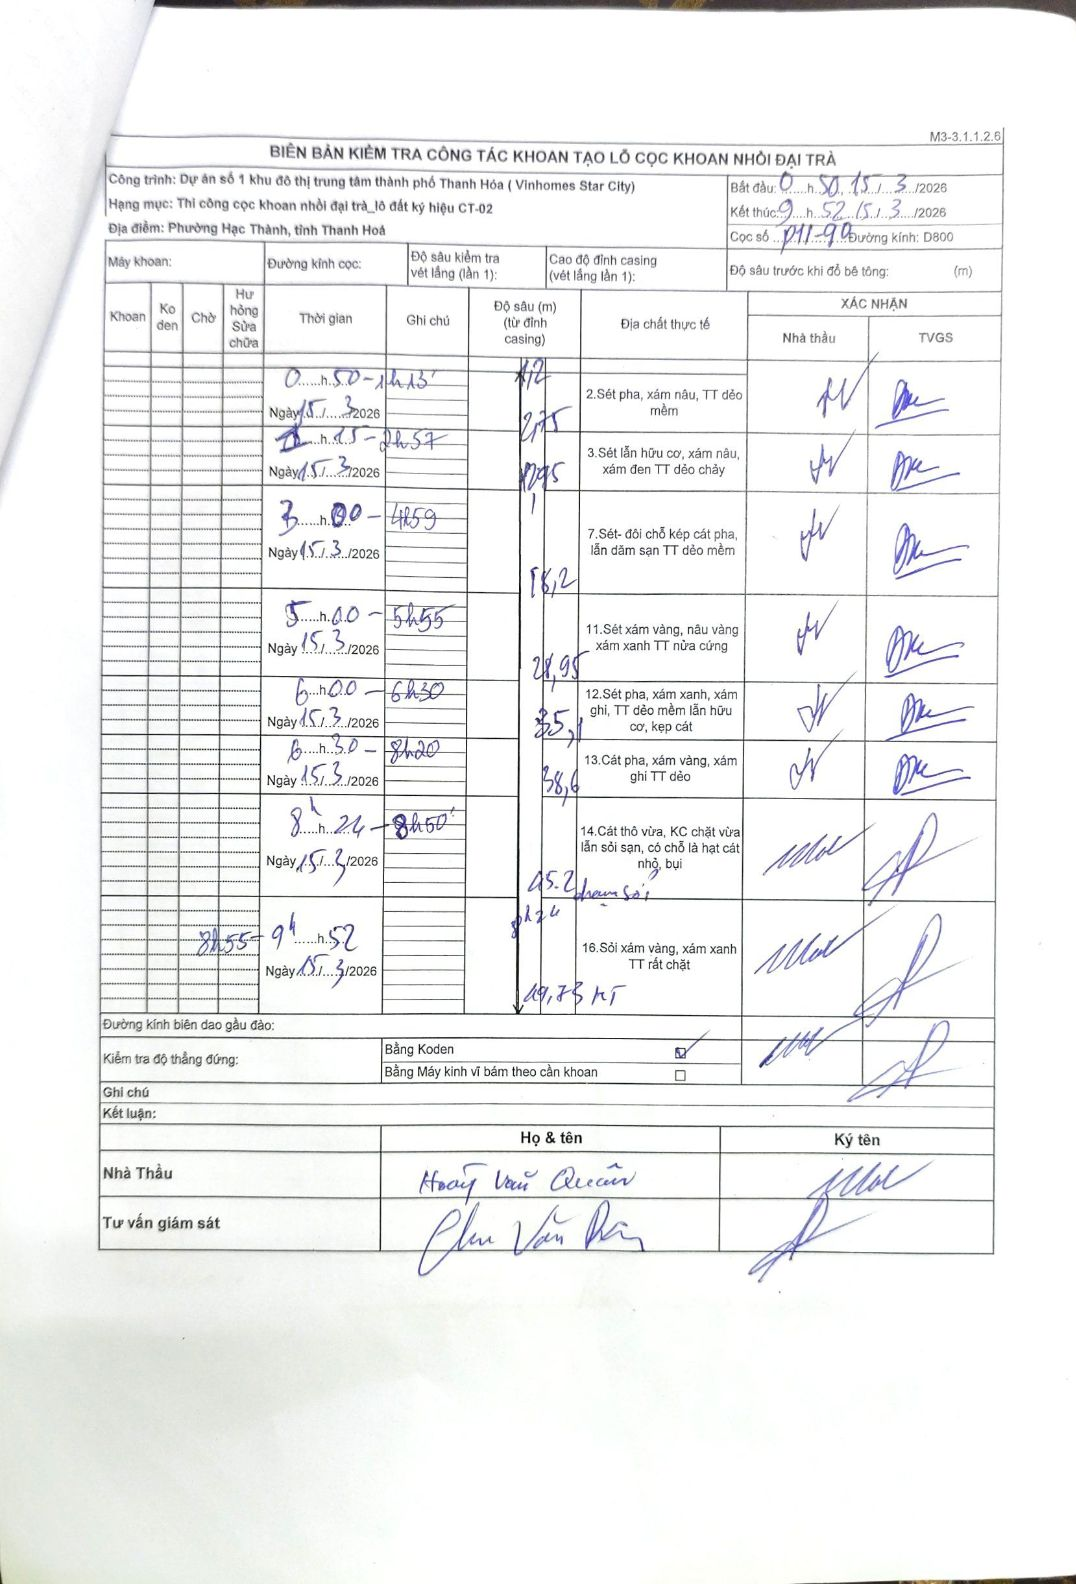 M3-3.1.1.2.6
BIÊN BẢN KIỂM TRA CÔNG TÁC KHOAN TẠO LỖ CỌC KHOAN NHỒI ĐẠI TRÀ
Công trình: Dự án số 1 khu đô thị trung tâm thành phố Thanh Hóa ( Vinhomes Star City)
Hạng mục: Thi công cọc khoan nhồi đại trà_lô đất ký hiệu CT-02
Địa điểm: Phường Hạc Thành, tỉnh Thanh Hoá
Bắt đầu: 0 h 50, 15 / 3 /2026
Kết thúc: 9 h 52 15 / 3 /2026
Cọc số P11-90 Đường kính: D800
Máy khoan:
Đường kính cọc:
Độ sâu kiểm tra vét lắng (lần 1):
Cao độ đỉnh casing (vét lắng lần 1):
Độ sâu trước khi đổ bê tông: (m)
Khoan
Ko den
Chờ
Hư hỏng Sửa chữa
Thời gian
Ghi chú
Độ sâu (m) (từ đỉnh casing)
Địa chất thực tế
XÁC NHẬN
Nhà thầu
TVGS
0 h 50 - 1h13' 1,2
Ngày 15 / 3 /2026
2.Sét pha, xám nâu, TT dẻo mềm
2,75
h 15 - 2h57
Ngày 15 / 3 /2026
3.Sét lẫn hữu cơ, xám nâu, xám đen TT dẻo chảy
3 h 00 - 4h59
Ngày 15 / 3 /2026
7.Sét- đôi chỗ kép cát pha, lẫn dăm sạn TT dẻo mềm
18,2
5 h 00 - 5h55
Ngày 15 / 3 /2026
11.Sét xám vàng, nâu vàng xám xanh TT nửa cứng
28,95
6 h 00 - 6h30
Ngày 15 / 3 /2026
12.Sét pha, xám xanh, xám ghi, TT dẻo mềm lẫn hữu cơ, kẹp cát
35,1
6 h 30 - 8h20
Ngày 15 / 3 /2026
13.Cát pha, xám vàng, xám ghi TT dẻo
38,6
8 h 24 - 8h50'
Ngày 15 / 3 /2026
14.Cát thô vừa, KC chặt vừa lẫn sỏi sạn, có chỗ là hạt cát nhỏ, bụi
45.2 chạm sỏi
8h24
8h55 - 9 h 52
Ngày 15 / 3 /2026
16.Sỏi xám vàng, xám xanh TT rất chặt
49,73 KT
Đường kính biên dao gầu đào:
Kiểm tra độ thẳng đứng:
Bằng Koden ☑
Bằng Máy kinh vĩ bám theo cần khoan ☐
Ghi chú
Kết luận:
Họ & tên
Ký tên
Nhà Thầu
Hoàng Văn Quân
Tư vấn giám sát
Chu Văn